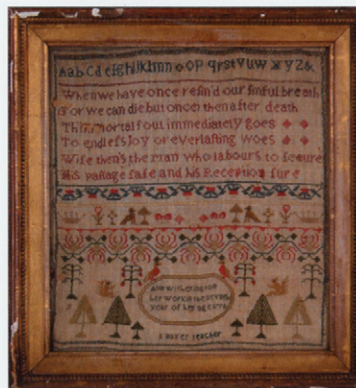 Aabcdefghijklmnopqrstvuwxyz&
When we have once resin'd our sinful breath
For we can die but once then after death
Th'immortal soul immediately goes
To endless Joy or everlasting Woes
Wise then's the man who labours to secure
His passage safe and his Reception sure
Ann
her work in the
year of her age
teacher